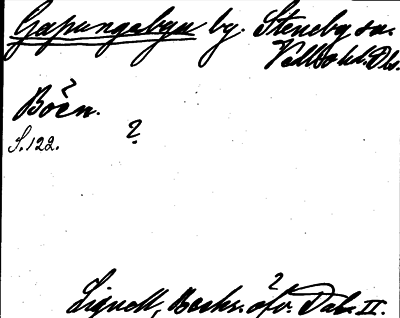 Gapungebyn by. Steneby sn.
Vedbo hd. Dls.
Böen.
S. 122. ?
Lignell, Beskr. öfv. Dal. II.